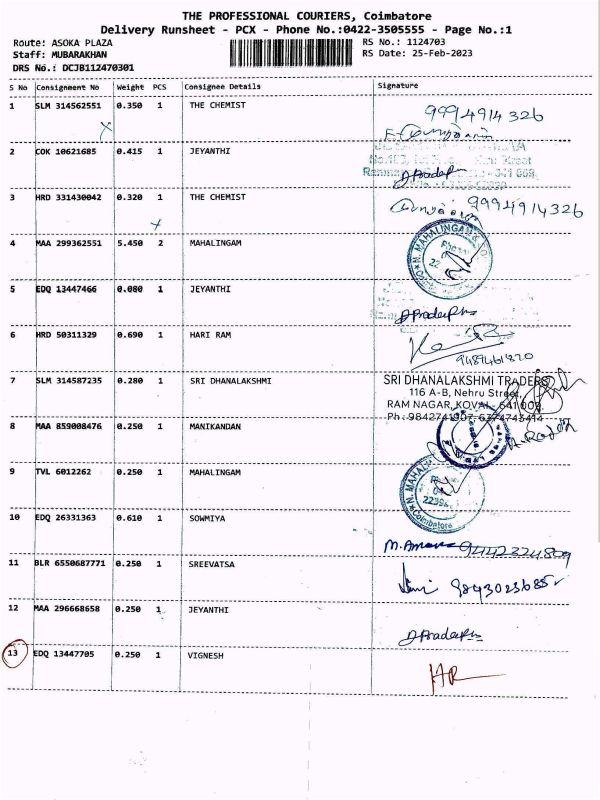 THE PROFESSIONAL COURIERS, Coimbatore
Delivery Runsheet - PCX - Phone No.:0422-3505555 - Page No.:1
Route: ASOKA PLAZA
Staff: MUBARAKHAN
DRS No.: DCJB112470301
RS No.: 1124703
RS Date: 25-Feb-2023
S No Consignment No Weight PCS Consignee Details Signature
1 SLM 314562551 0.350 1 THE CHEMIST 9994914326
2 COK 10621685 0.415 1 JEYANTHI
3 HRD 331430042 0.320 1 THE CHEMIST 9994914326
4 MAA 299362551 5.450 2 MAHALINGAM
N. MAHALINGAM
5 EDQ 13447466 0.080 1 JEYANTHI
6 HRD 50311329 0.690 1 HARI RAM
7 SLM 314587235 0.280 1 SRI DHANALAKSHMI SRI DHANALAKSHMI TRADERS
116 A-B, Nehru Street,
RAM NAGAR, KOVAI - 641 009.
8 MAA 859008476 0.250 1 MANIKANDAN
9 TVL 6012262 0.250 1 MAHALINGAM
Coimbatore
10 EDQ 26331363 0.610 1 SOWMIYA
11 BLR 6550687771 0.250 1 SREEVATSA
12 MAA 296668658 0.250 1 JEYANTHI
13 EDQ 13447705 0.250 1 VIGNESH